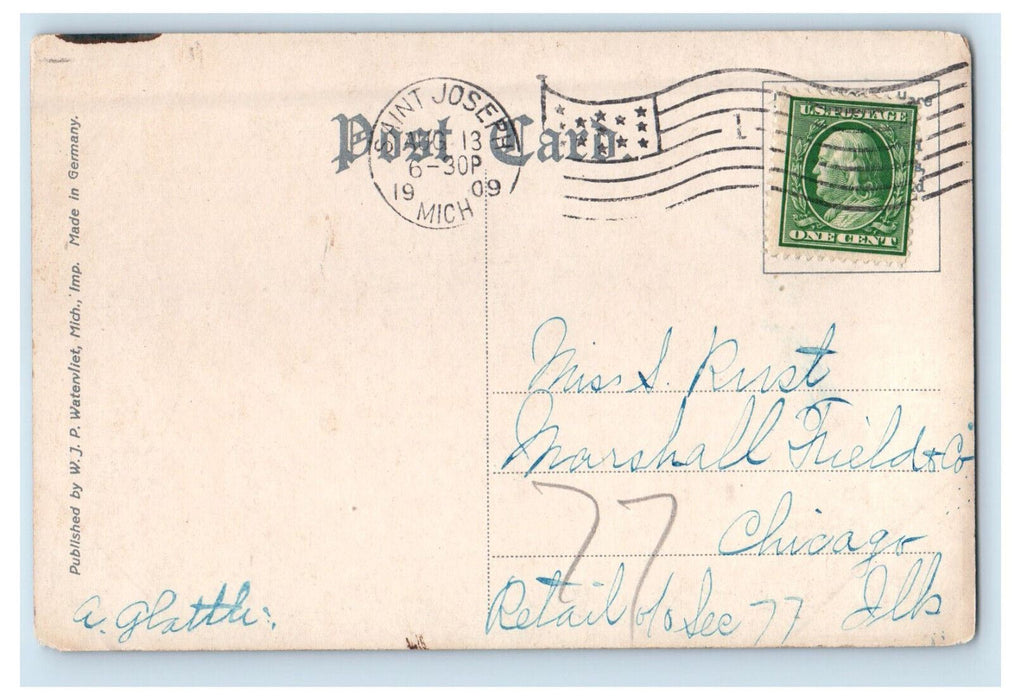 Post Card.
SAINT JOSEPH
AUG 13
6-30P
19 09
MICH
1
U.S. POSTAGE
ONE CENT
Published by W. J. P. Watervliet, Mich., Imp. Made in Germany.
Miss S. Rust
Marshall Field & Co
Chicago
Retail o/o Sec 77 Ills
77
A. Glattli